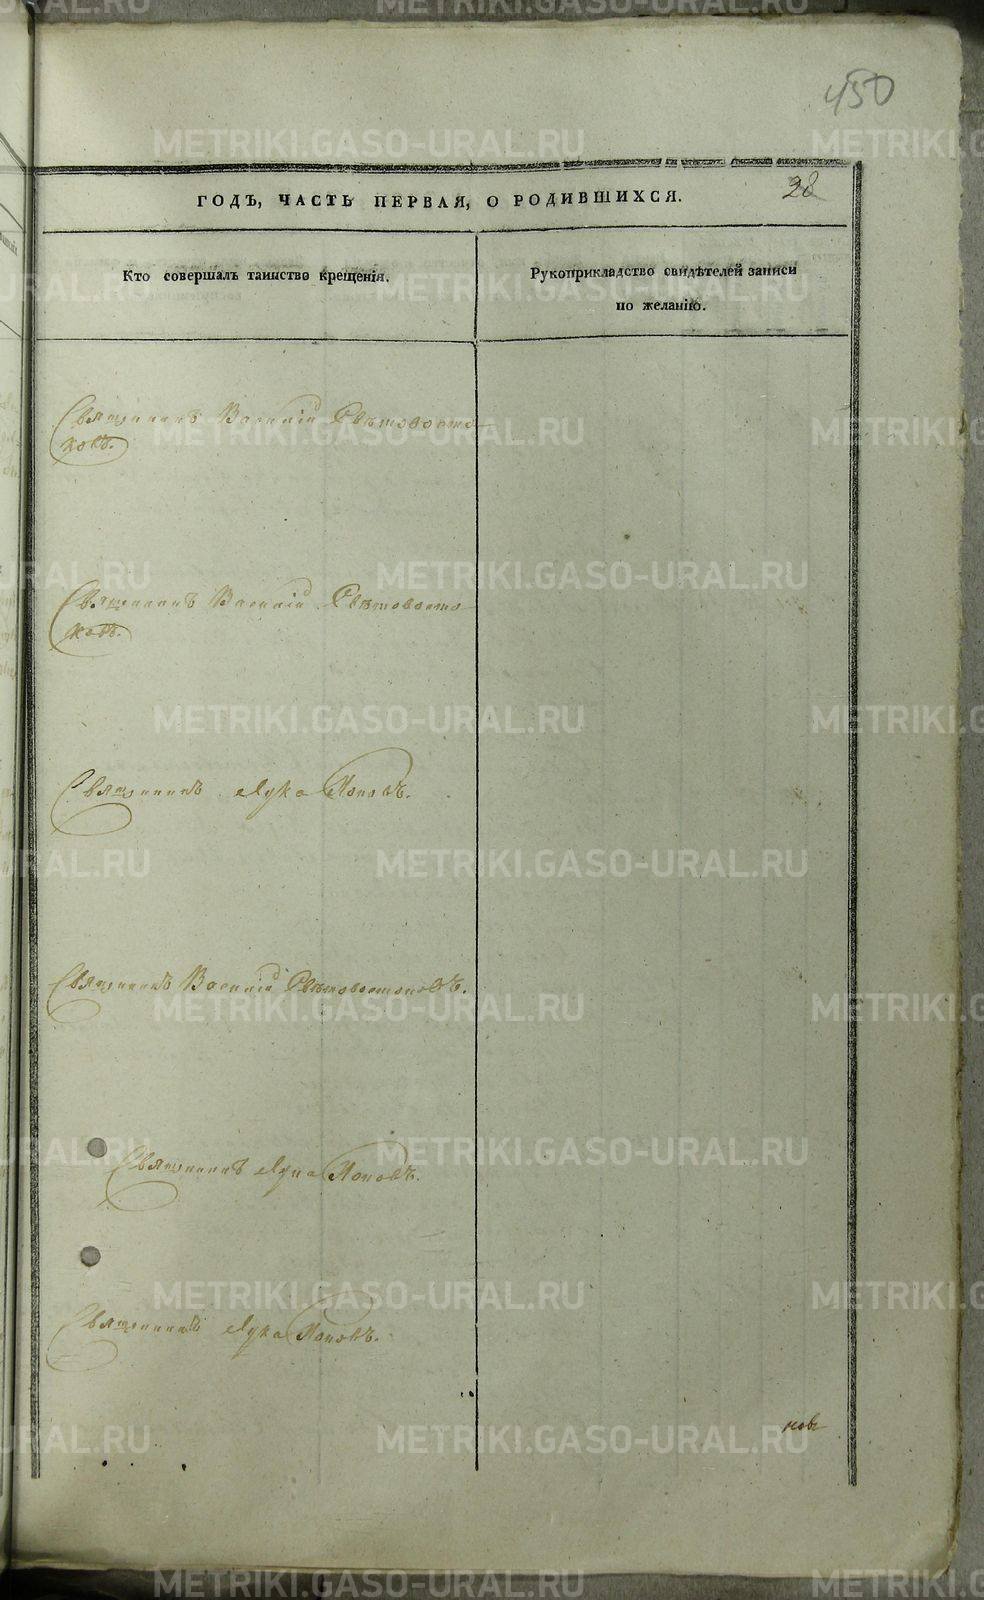 450
ГОДЪ, ЧАСТЬ ПЕРВАЯ, О РОДИВШИХСЯ.
28
Кто совершалъ таинство крещенія.
Рукоприкладство свидѣтелей записи
по желанію.
Священникъ Василій Свѣтовосто
ковъ.
Священникъ Василій Свѣтовосто
ковъ.
Священникъ Лука Поповъ.
Священникъ Василій Свѣтовостоковъ.
Священникъ Лука Поповъ.
Священникъ Лука Поповъ.
METRIKI.GASO-URAL.RU